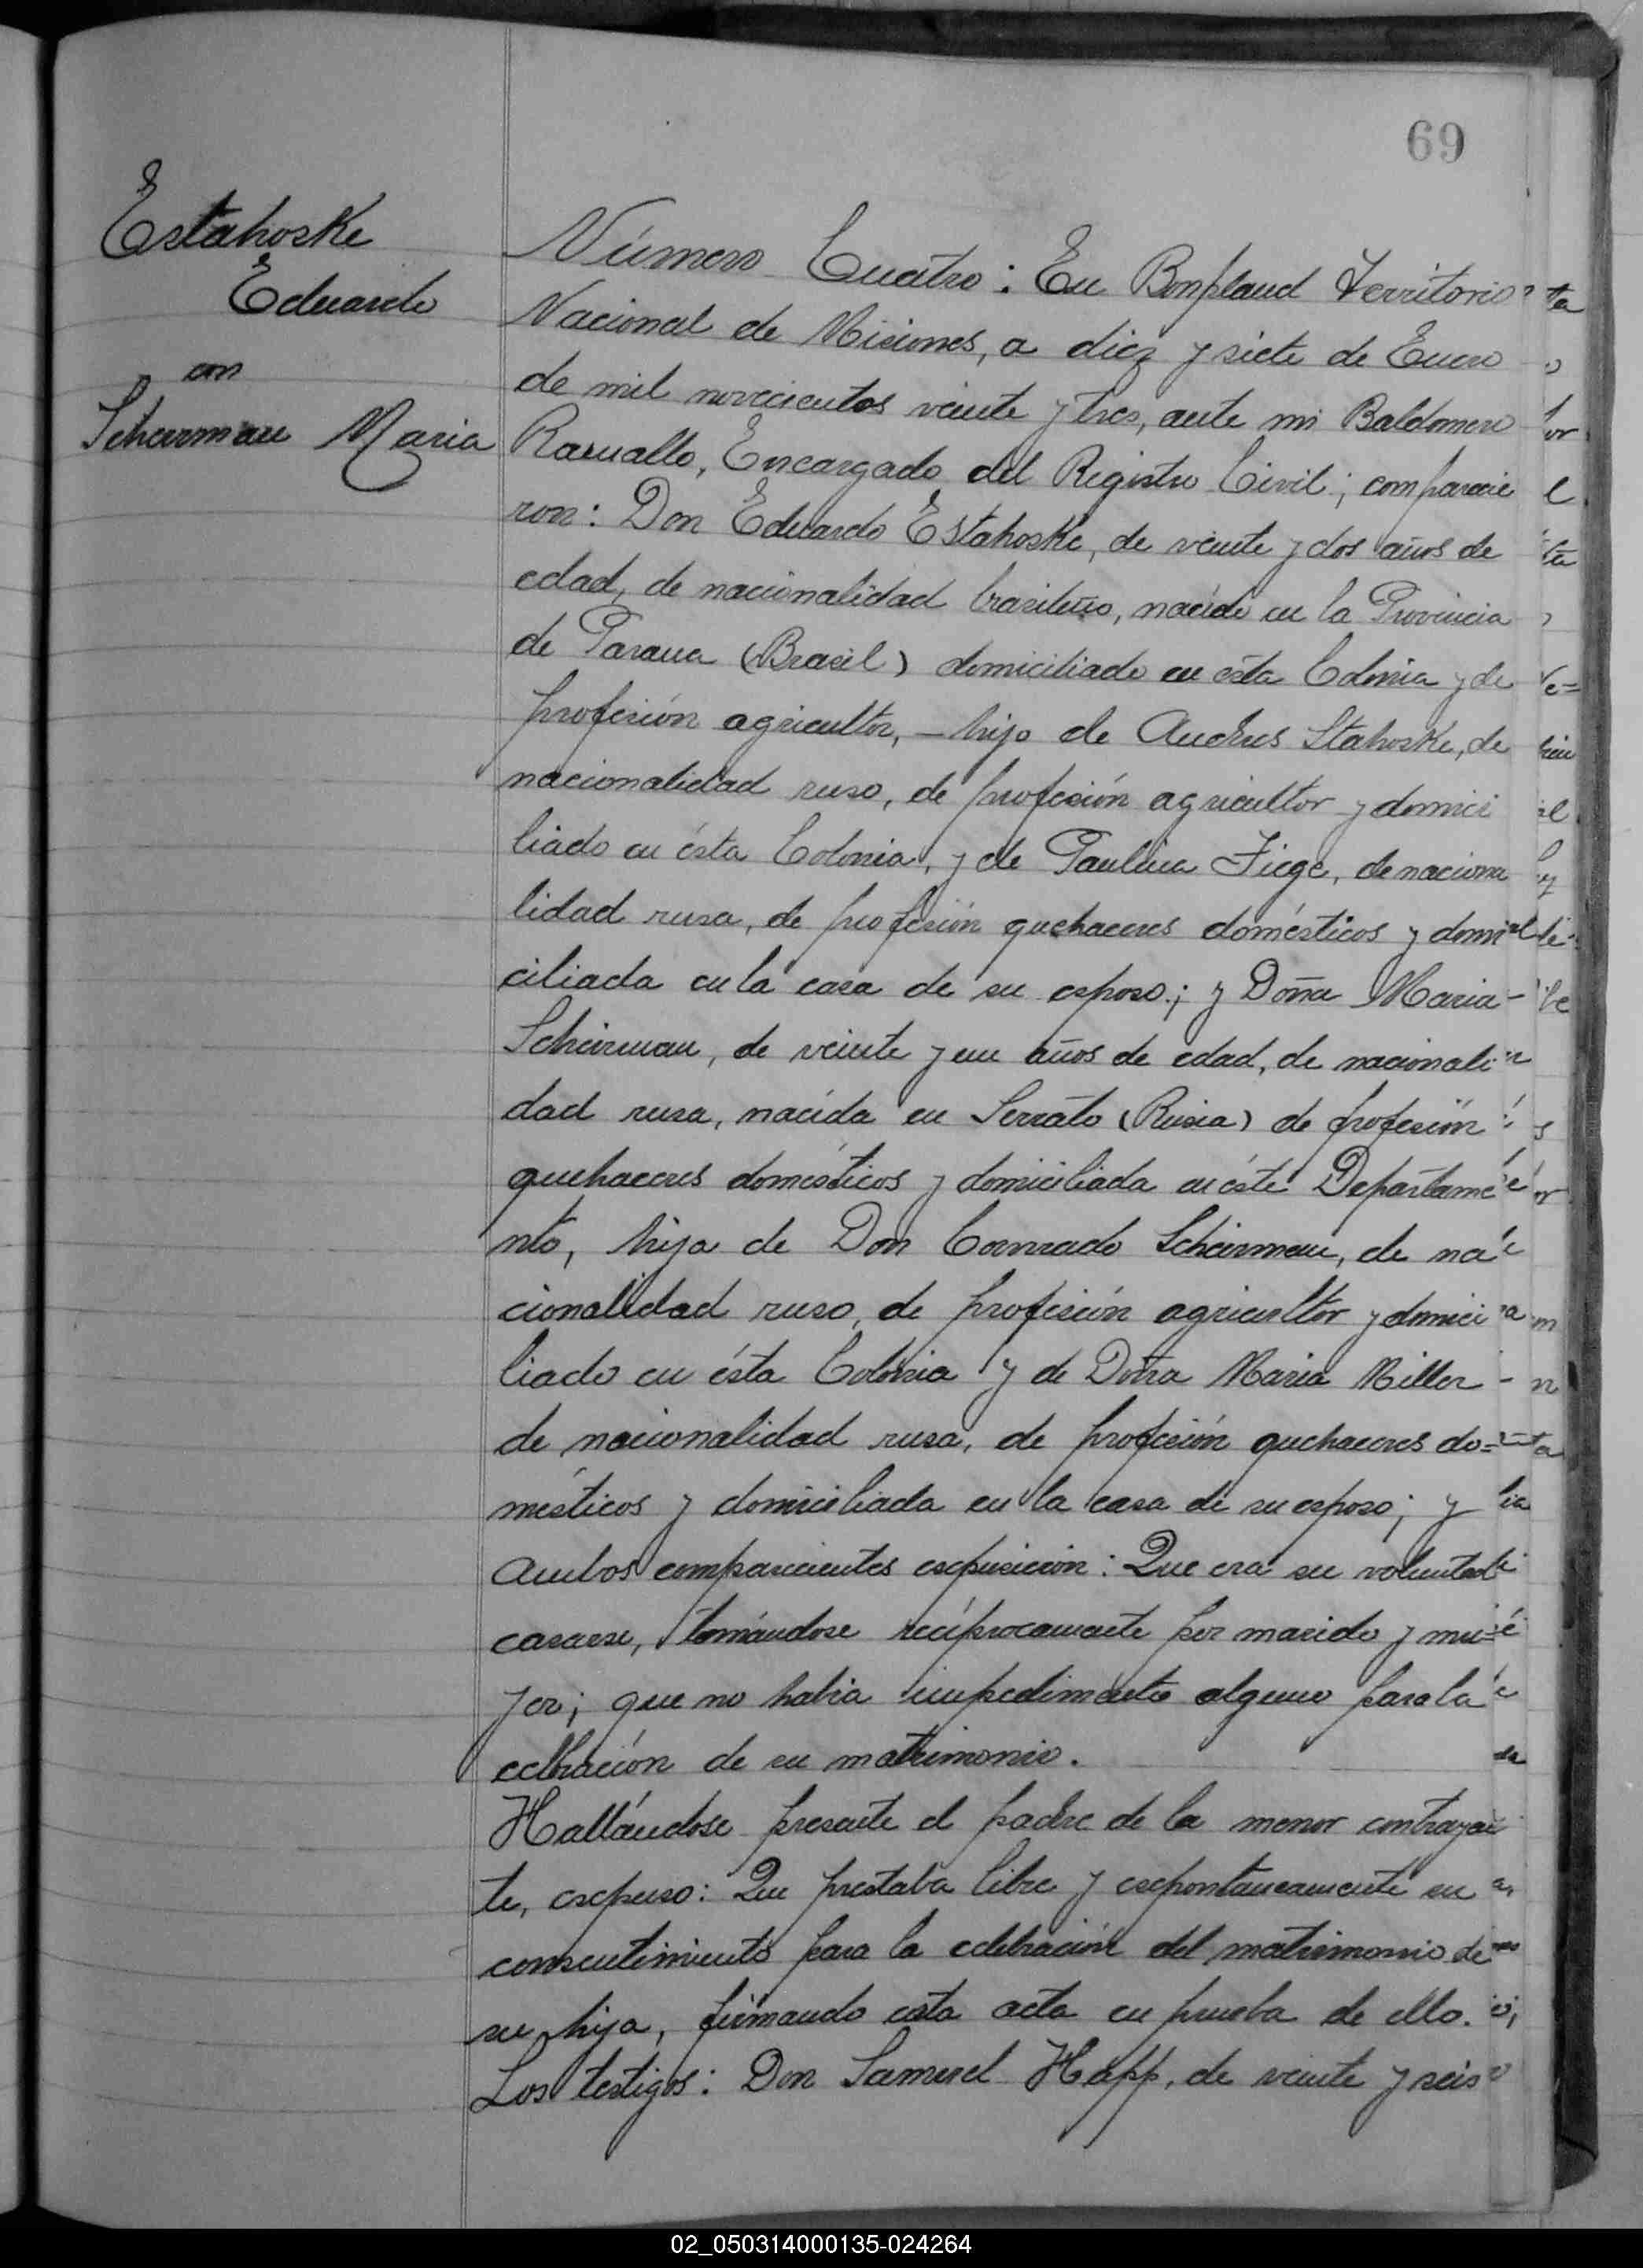 69
Estahoske
Eduardo
con
Scheirman Maria
Número Cuatro: En Bonpland Territorio
Nacional de Misiones, a diez y siete de Enero
de mil novecientos veinte y tres, ante mi Baldomero
Encargado del Registro Civil; comparecie
ron: Don Eduardo Estahoske, de veinte y dos años de
edad, de nacionalidad brasileño, nacido en la Provincia
de Parana (Brasil) domiciliado en ésta Colonia y de
profesión agricultor, – hijo de Andres Stahoske, de
nacionalidad ruso, de profesión agricultor y domici
liado en ésta Colonia, y de Paulina Fiege, de naciona
lidad rusa, de profesión quehaceres domésticos y domi
ciliada en la casa de su esposo; y Doña Maria
Scheirman, de veinte y un años de edad, de nacionali
dad rusa, nacida en Serrato (Rusia) de profesión
quehaceres domésticos y domiciliada en éste Departame
nto, hija de Don Connrado Scheirman, de na
cionalidad ruso, de profesión agricultor y domici
liado en ésta Colonia y de Doña Maria Miller
de nacionalidad rusa, de profesión quehaceres do=
mésticos y domiciliada en la casa de su esposo; y
ambos comparecientes espusieron: Que era su voluntad
casarse, tomándose recíprocamente por marido y mu=
jer; que no habia impedimento alguno para la
celbración de su matrimonio.
Hallándose presente el padre de la menor contrayen
te, espuso: Que prestaba libre y espontaneamente su
consentimiento para la celebración del matrimonio de
su hija, firmando esta acta en prueba de ello.
Los testigos: Don Samuel Happ, de veinte y seis
02_050314000135-024264